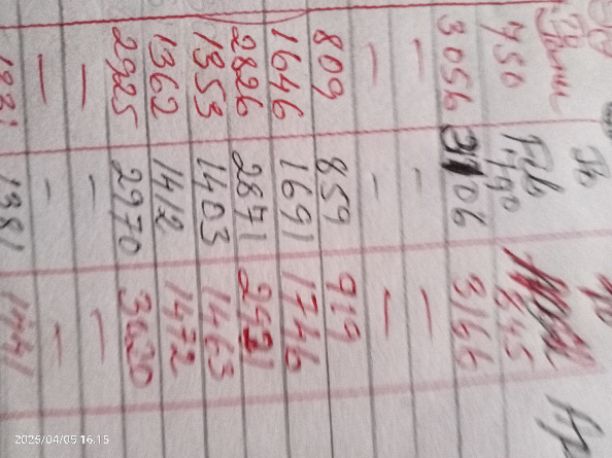 Feb
750 790 845
3056 3106 3166
— - —
— - —
809 859 919
1646 1691 1746
2826 2871 2921
1353 1403 1463
1362 1412 1472
2925 2970 3020
— - —
— - —
1381 1441
2025/04/05 16:15